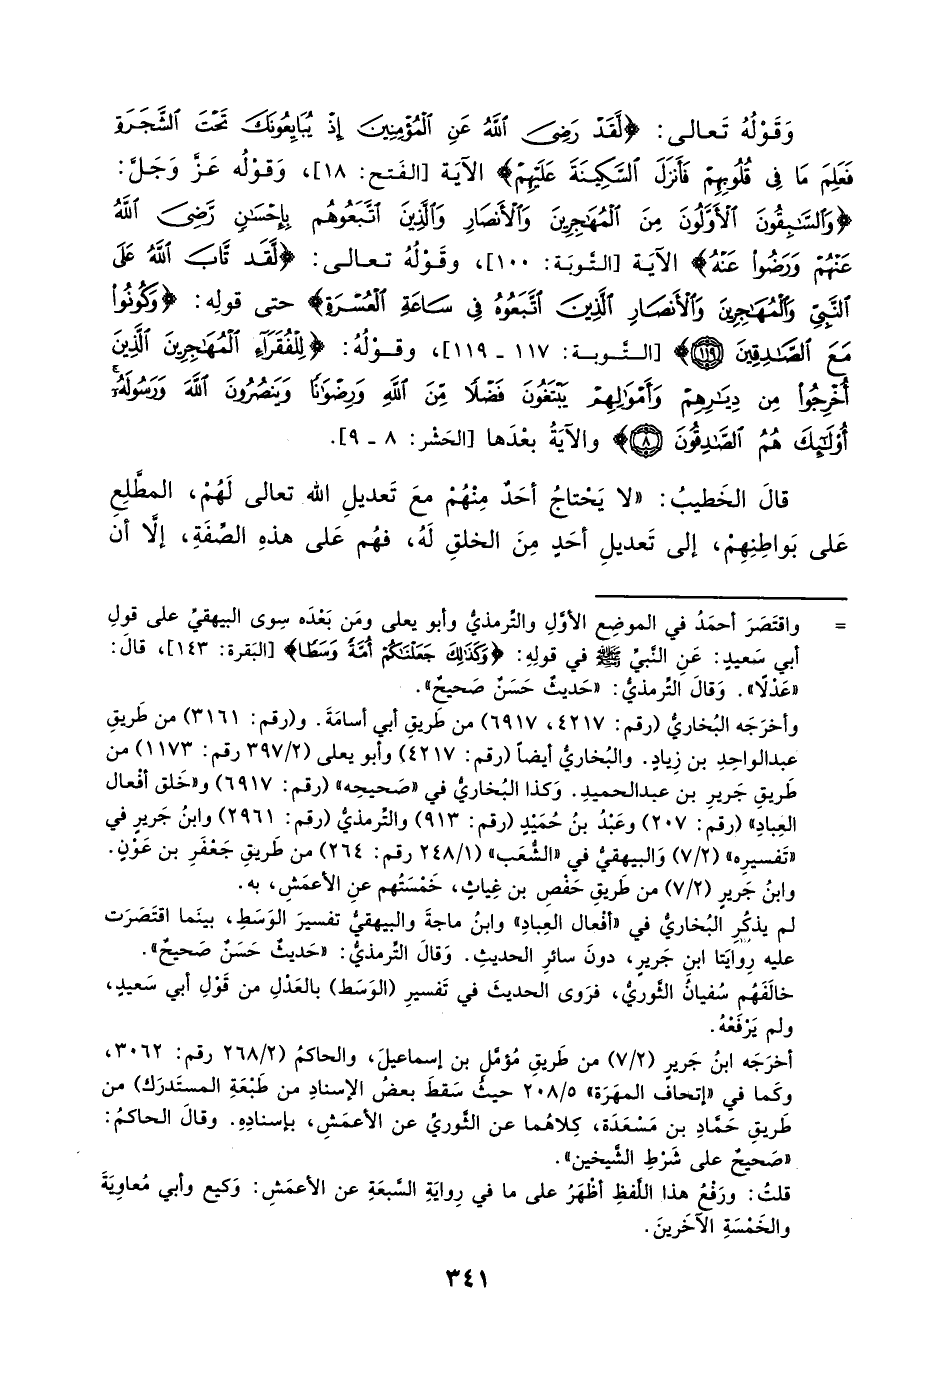 وَقَوْلُهُ تَعالى: ﴿لَّقَدْ رَضِيَ اللَّهُ عَنِ الْمُؤْمِنِينَ إِذْ يُبَايِعُونَكَ تَحْتَ الشَّجَرَةِ
فَعَلِمَ مَا فِي قُلُوبِهِمْ فَأَنزَلَ السَّكِينَةَ عَلَيْهِمْ﴾ الآيَة [الفَتح: ١٨]، وَقوْلُه عَزَّ وَجَلَّ:
﴿وَالسَّابِقُونَ الْأَوَّلُونَ مِنَ الْمُهَاجِرِينَ وَالْأَنصَارِ وَالَّذِينَ اتَّبَعُوهُم بِإِحْسَانٍ رَّضِيَ اللَّهُ
عَنْهُمْ وَرَضُوا عَنْهُ﴾ الآيَة [التَّوبَة: ١٠٠]، وقَوْلُهُ تعالى: ﴿لَّقَد تَّابَ اللَّهُ عَلَى
النَّبِيِّ وَالْمُهَاجِرِينَ وَالْأَنصَارِ الَّذِينَ اتَّبَعُوهُ فِي سَاعَةِ الْعُسْرَةِ﴾ حتى قولِه: ﴿وَكُونُوا
مَعَ الصَّادِقِينَ ١١٩﴾ [التَّوبة: ١١٧ - ١١٩]، وقَولُهُ: ﴿لِلْفُقَرَاءِ الْمُهَاجِرِينَ الَّذِينَ
أُخْرِجُوا مِن دِيَارِهِمْ وَأَمْوَالِهِمْ يَبْتَغُونَ فَضْلًا مِّنَ اللَّهِ وَرِضْوَانًا وَيَنصُرُونَ اللَّهَ وَرَسُولَهُ
أُولَٰئِكَ هُمُ الصَّادِقُونَ ٨﴾ والآيَةُ بعْدَها [الحَشْر: ٨ - ٩].
قالَ الخَطيبُ: «لا يَحْتاجُ أحَدٌ مِنْهُمْ معَ تَعديلِ الله تعالى لَهُمْ، المطَّلعِ
عَلى بَواطِنِهِمْ، إلى تَعديلِ أحَدٍ مِنَ الخلقِ لَهُ، فهُم عَلى هذهِ الصِّفَةِ، إلَّا أن
= واقتَصَرَ أحمَدُ في الموضِعِ الأوَّلِ والتِّرمذيُّ وأبو يعلى ومَن بَعْدَه سِوى البيهقيِّ على قولِ
أبي سَعيدٍ: عَنِ النَّبيِّ ﷺ في قولِهِ: ﴿وَكَذَٰلِكَ جَعَلْنَاكُمْ أُمَّةً وَسَطًا﴾ [البَقرة: ١٤٣]، قالَ:
«عَدْلًا». وَقالَ التِّرمذيُّ: «حَديثٌ حَسَنٌ صَحيحٌ».
وأخرَجَه البُخاريُّ (رقم: ٤٢١٧، ٦٩١٧) من طَريقِ أبي أسامَةَ. و(رقم: ٣١٦١) من طَريقِ
عبدالواحِدِ بن زِيادٍ. والبُخاريُّ أيضاً (رقم: ٤٢١٧) وأبو يعلى (٣٩٧/٢ رقم: ١١٧٣) من
طَريقِ جَريرِ بن عبدالحميدِ. وَكذا البُخاريُّ في «صَحيحِه» (رقم: ٦٩١٧) و«خَلق أفْعال
العِبادِ» (رقم: ٢٠٧) وعَبْدُ بنُ حُمَيْدٍ (رقم: ٩١٣) والتِّرمذيُّ (رقم: ٢٩٦١) وابنُ جَريرٍ في
«تَفسيرِه» (٧/٢) وَالبيهقيُّ في «الشُّعَب» (٢٤٨/١ رقم: ٢٦٤) من طَريقِ جَعْفَرِ بن عَوْنٍ.
وابنُ جَريرٍ (٧/٢) من طَريقِ حَفْصِ بن غِياثٍ، خَمْسَتُهم عنِ الأعمَشِ، به.
لم يذكُرِ البُخاريُّ في «أفْعال العِباد» وابنُ ماجةَ والبيهقيُّ تفسيرَ الوَسَطِ، بينَما اقتَصَرَت
عليه رِوايَتا ابنِ جَريرٍ، دونَ سائرِ الحديثِ. وَقالَ التِّرمذيُّ: «حَديثٌ حَسَنٌ صَحيحٌ».
خالَفَهُم سُفيانُ الثَّوريُّ، فرَوى الحديثَ في تَفسيرِ (الوَسَط) بالعَدْلِ من قَوْلِ أبي سَعيدٍ،
ولم يَرْفَعْهُ.
أخرَجَه ابنُ جَريرٍ (٧/٢) من طَريقِ مُؤمَّلِ بن إسماعيلَ، والحاكمُ (٢٦٨/٢ رقم: ٣٠٦٢،
وكَما في «إتحاف المهَرَة» ٢٠٨/٥ حيثُ سَقطَ بعضُ الإسنادِ من طَبْعَةِ المستَدرَك) من
طَريقِ حَمَّادِ بن مَسْعَدَة، كِلاهُما عن الثَّوريِّ عن الأعمَشِ، بإسنادِهِ. وقالَ الحاكمُ:
«صَحيحٌ على شَرْطِ الشَّيخين».
قلتُ: ورَفْعُ هذا اللَّفظِ أظْهَرُ على ما في رِوايَةِ السَّبعَةِ عن الأعمَشِ: وَكيع وأبي مُعاوِيَةَ
والخَمْسَةِ الآخَرينَ.
٣٤١